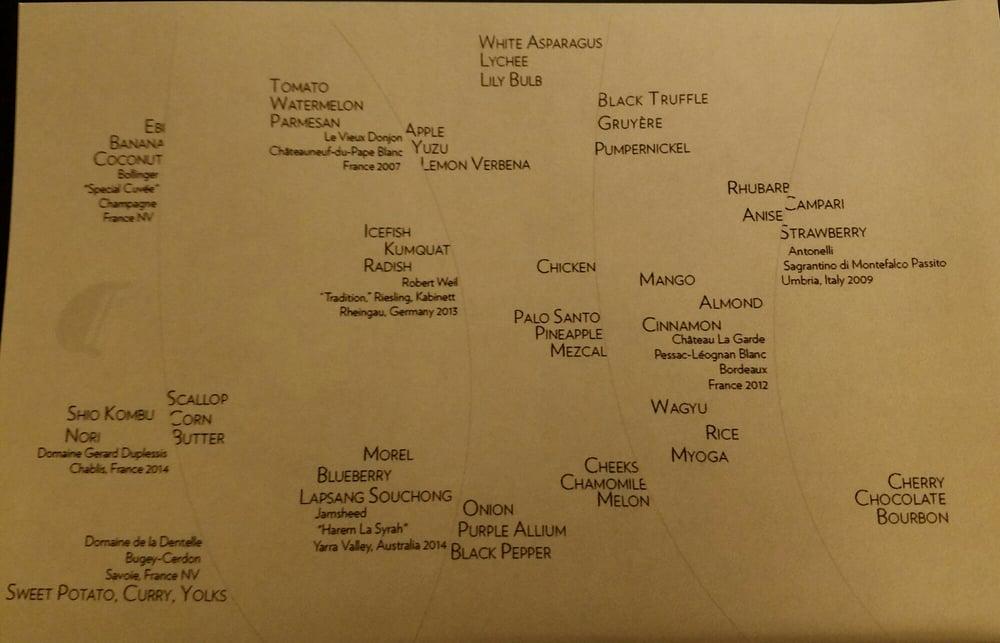 White Asparagus
Lychee
Lily Bulb
Tomato
Watermelon
Parmesan
Le Vieux Donjon
Châteauneuf-du-Pape Blanc
France 2007
Apple
Yuzu
Lemon Verbena
Black Truffle
Gruyère
Pumpernickel
Ebi
Banana
Coconut
Bollinger
"Special Cuvée"
Champagne
France NV
Rhubarb
Anise
Campari
Strawberry
Antonelli
Sagrantino di Montefalco Passito
Umbria, Italy 2009
Icefish
Kumquat
Radish
Robert Weil
"Tradition," Riesling, Kabinett
Rheingau, Germany 2013
Chicken
Palo Santo
Pineapple
Mezcal
Mango
Almond
Cinnamon
Château La Garde
Pessac-Léognan Blanc
Bordeaux
France 2012
Scallop
Corn
Butter
Shio Kombu
Nori
Domaine Gerard Duplessis
Chablis, France 2014
Wagyu
Rice
Myoga
Morel
Blueberry
Lapsang Souchong
Jamsheed
"Harem La Syrah"
Yarra Valley, Australia 2014
Onion
Purple Allium
Black Pepper
Cheeks
Chamomile
Melon
Cherry
Chocolate
Bourbon
Domaine de la Dentelle
Bugey-Cerdon
Savoie, France NV
Sweet Potato, Curry, Yolks